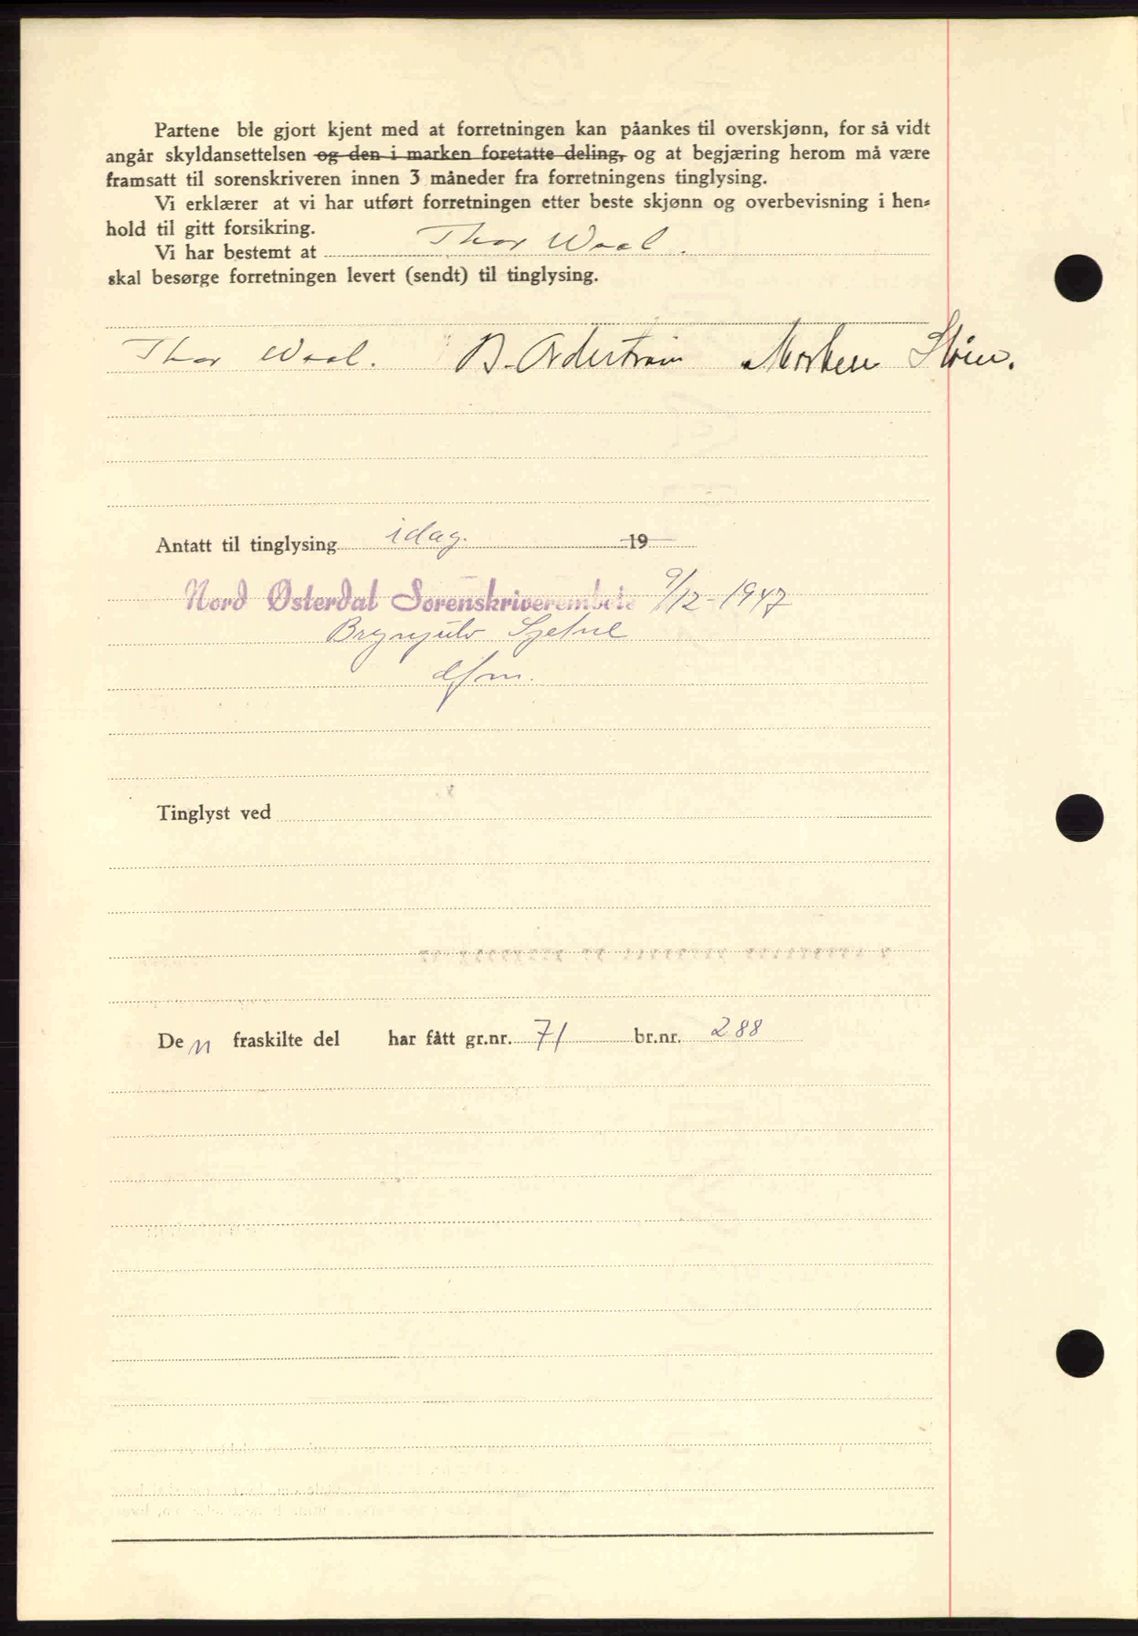 Partene ble gjort kjent med at forretningen kan påankes til overskjønn, for så vidt
angår skyldansettelsen og den i marken foretatte deling, og at begjæring herom må være
framsatt til sorenskriveren innen 3 måneder fra forretningens tinglysing.
Vi erklærer at vi har utført forretningen etter beste skjønn og overbevisning i hen-
hold til gitt forsikring.
Vi har bestemt at Thor Waal.
skal besørge forretningen levert (sendt) til tinglysing.
Thor Waal. B. Morken Støen.
Antatt til tinglysing idag. 19
Nord Østerdal Sorenskriverembete 9/12-1947
Brynjulv
dfm.
Tinglyst ved
Den fraskilte del har fått gr.nr. 71 br.nr. 288